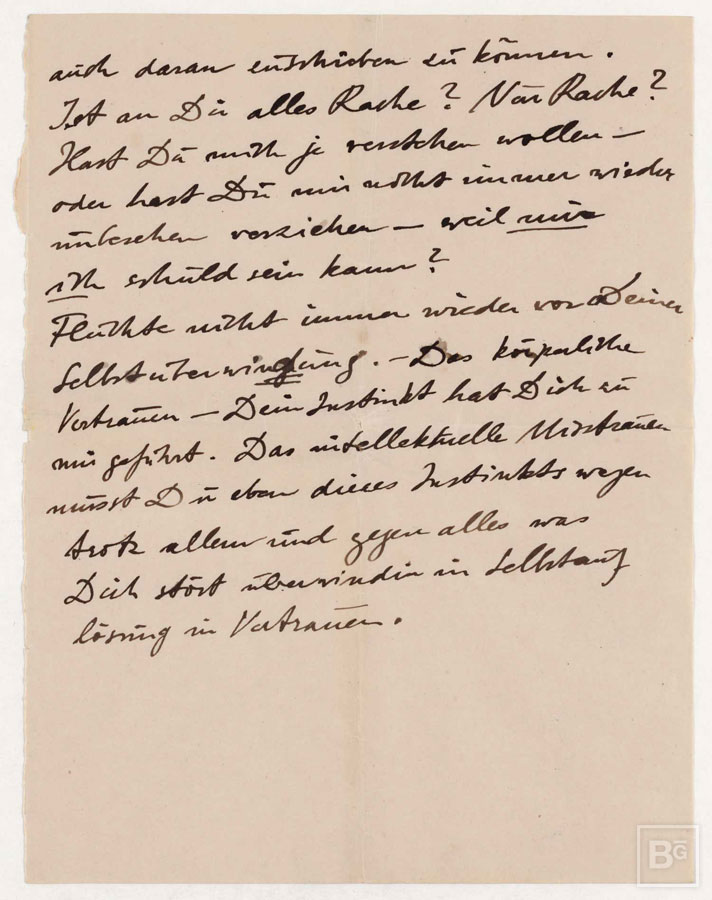 auch daran entschieben zu können.
Ist an Dü alles Rache? Nür Rache?
Hast Dü mich je verstehen wollen –
oder hast Dü mir nicht immer wieder
unbesehen verziehen – weil nur
ich schuld sein kann?
Flüchte nicht immer wieder vor Deiner
Selbstüberwindung. – Das körperliche
Vertrauen – Dein Instinkt hat Dich zu
mir geführt. Das intellektuelle Misstrauen
musst Dü eben dieses Instinkts wegen
trotz allem und gegen alles was
Dich stört überwinden in Selbstauf
lösung in Vertrauen.
BG